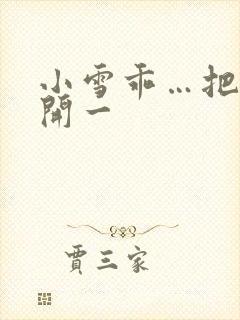 小雪乖…把
開一
賈三家